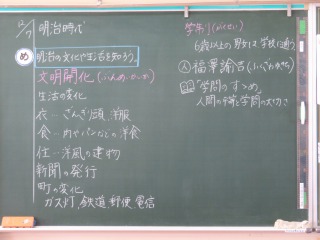 12/7
明治時代
め
明治の文化や生活を知ろう。
文明開化(ぶんめいかいか)
生活の変化
衣…ざんぎり頭 洋服
食…肉やパンなどの洋食
住…洋風の建物
新聞の発行
町の変化
ガス灯 鉄道 郵便 電信
学制(がくせい)
6歳以上の男女は学校に通う
人 福澤諭吉(ふくざわゆきち)
「学問のすゝめ」
人間の平等と学問の大切さ